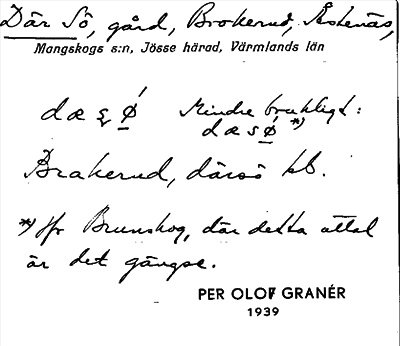 Där Sö, gård, Brokerud, Åstenäs,
Mangskogs s:n, Jösse härad, Värmlands län
dæʂǿ Mindre brukligt:
dæsǿ *)
Brakerud, därsö kb.
*) Jfr Brunskog, där detta uttal
är det gängse.
PER OLOF GRANÉR
1939